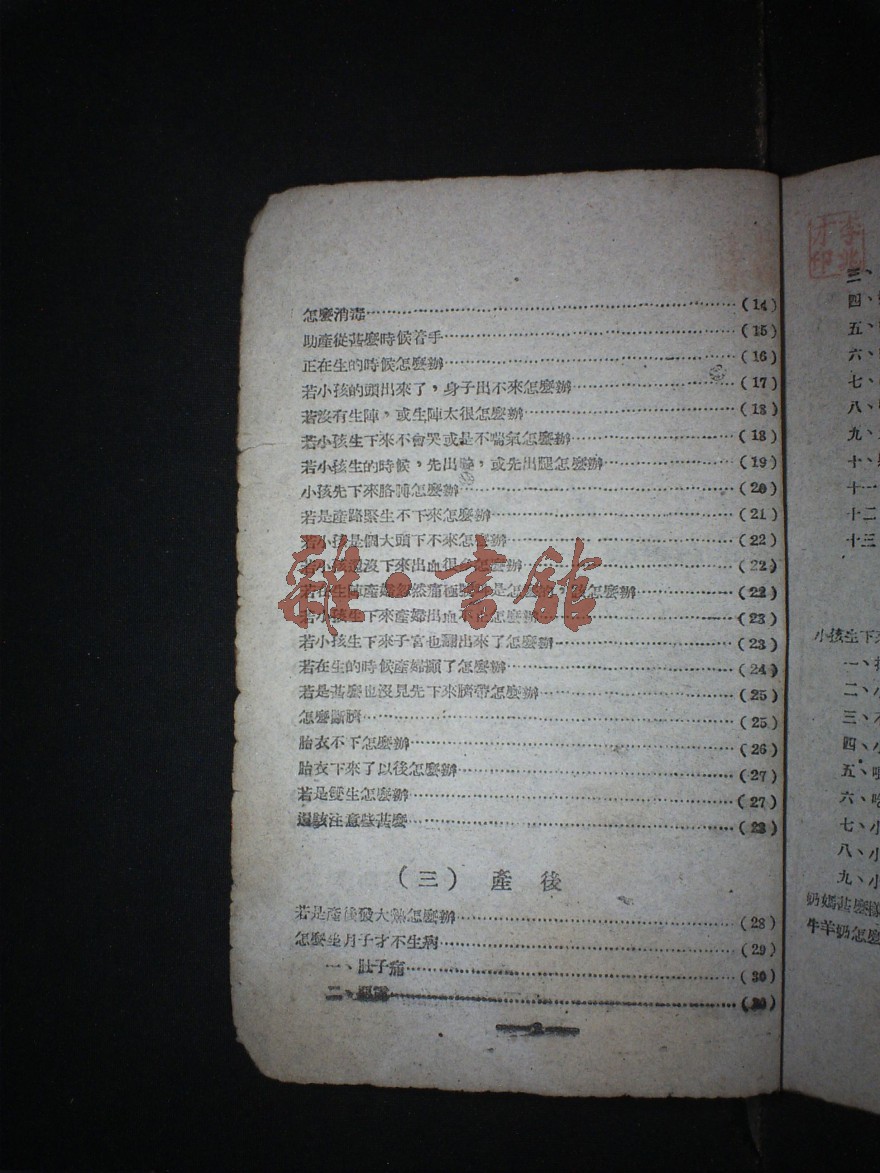 怎麼消毒……(14)
助產從甚麼時候着手……(15)
正在生的時候怎麼辦……(16)
若小孩的頭出來了，身子出不來怎麼辦……(17)
若沒有生陣，或生陣太很怎麼辦……(18)
若小孩生下來不會哭或是不喘氣怎麼辦……(18)
若小孩生的時候，先出，或先出腿怎麼辦……(19)
小孩先下來胳膊怎麼辦……(20)
若是產路緊生不下來怎麼辦……(21)
若小孩是個大頭下不來怎麼辦……(22)
若小孩還沒下來出血很多怎麼辦……(22)
若在生陣產婦忽然痛極……是怎……怎麼辦……(22)
若小孩生下來產婦出血不止怎麼辦……(23)
若小孩生下來子宮也翻出來了怎麼辦……(23)
若在生的時候產婦……了怎麼辦……(24)
若是甚麼也沒見先下來臍帶怎麼辦……(25)
怎麼斷臍……(25)
胎衣不下怎麼辦……(26)
胎衣下來了以後怎麼辦……(27)
若是雙生怎麼辦……(27)
還該注意些甚麼……(28)
(三) 產後
若是產後發大熱怎麼辦……(28)
怎麼坐月子才不生病……(29)
一、肚子痛……(30)
二、惡露……(30)
2
雜·書館
李兆才印
三、
四、
五、
六、
七、
八、
九、
十、
十一
十二
十三
小孩生下來
一、
二、小
三、不
四、小
五、
六、吃
七、小
八、小
九、小
奶媽甚麼樣
牛羊奶怎麼